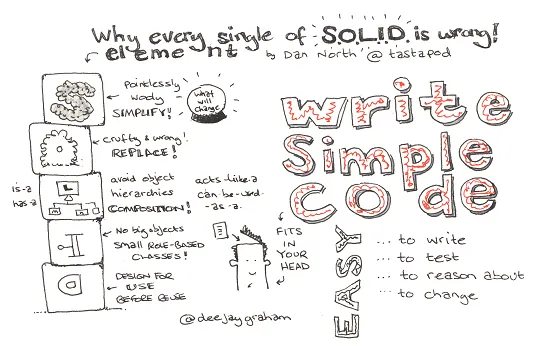 Why every single of S.O.L.I.D. is wrong!
element
by Dan North @tastapod
S
Pointlessly
Wooly
SIMPLIFY!
what
will
change
O
crufty & wrong!
REPLACE!
is-a
has-a
L
avoid object
hierarchies
COMPOSITION!
acts-like-a
can-be-used-
-as-a.
I
No big objects
Small ROLE-BASED
CLASSES!
D
DESIGN FOR
USE
BEFORE REUSE
write
Simple
Code
FITS
IN
YOUR
HEAD
EASY
... to write
... to test
... to reason about
... to change
@deejaygraham